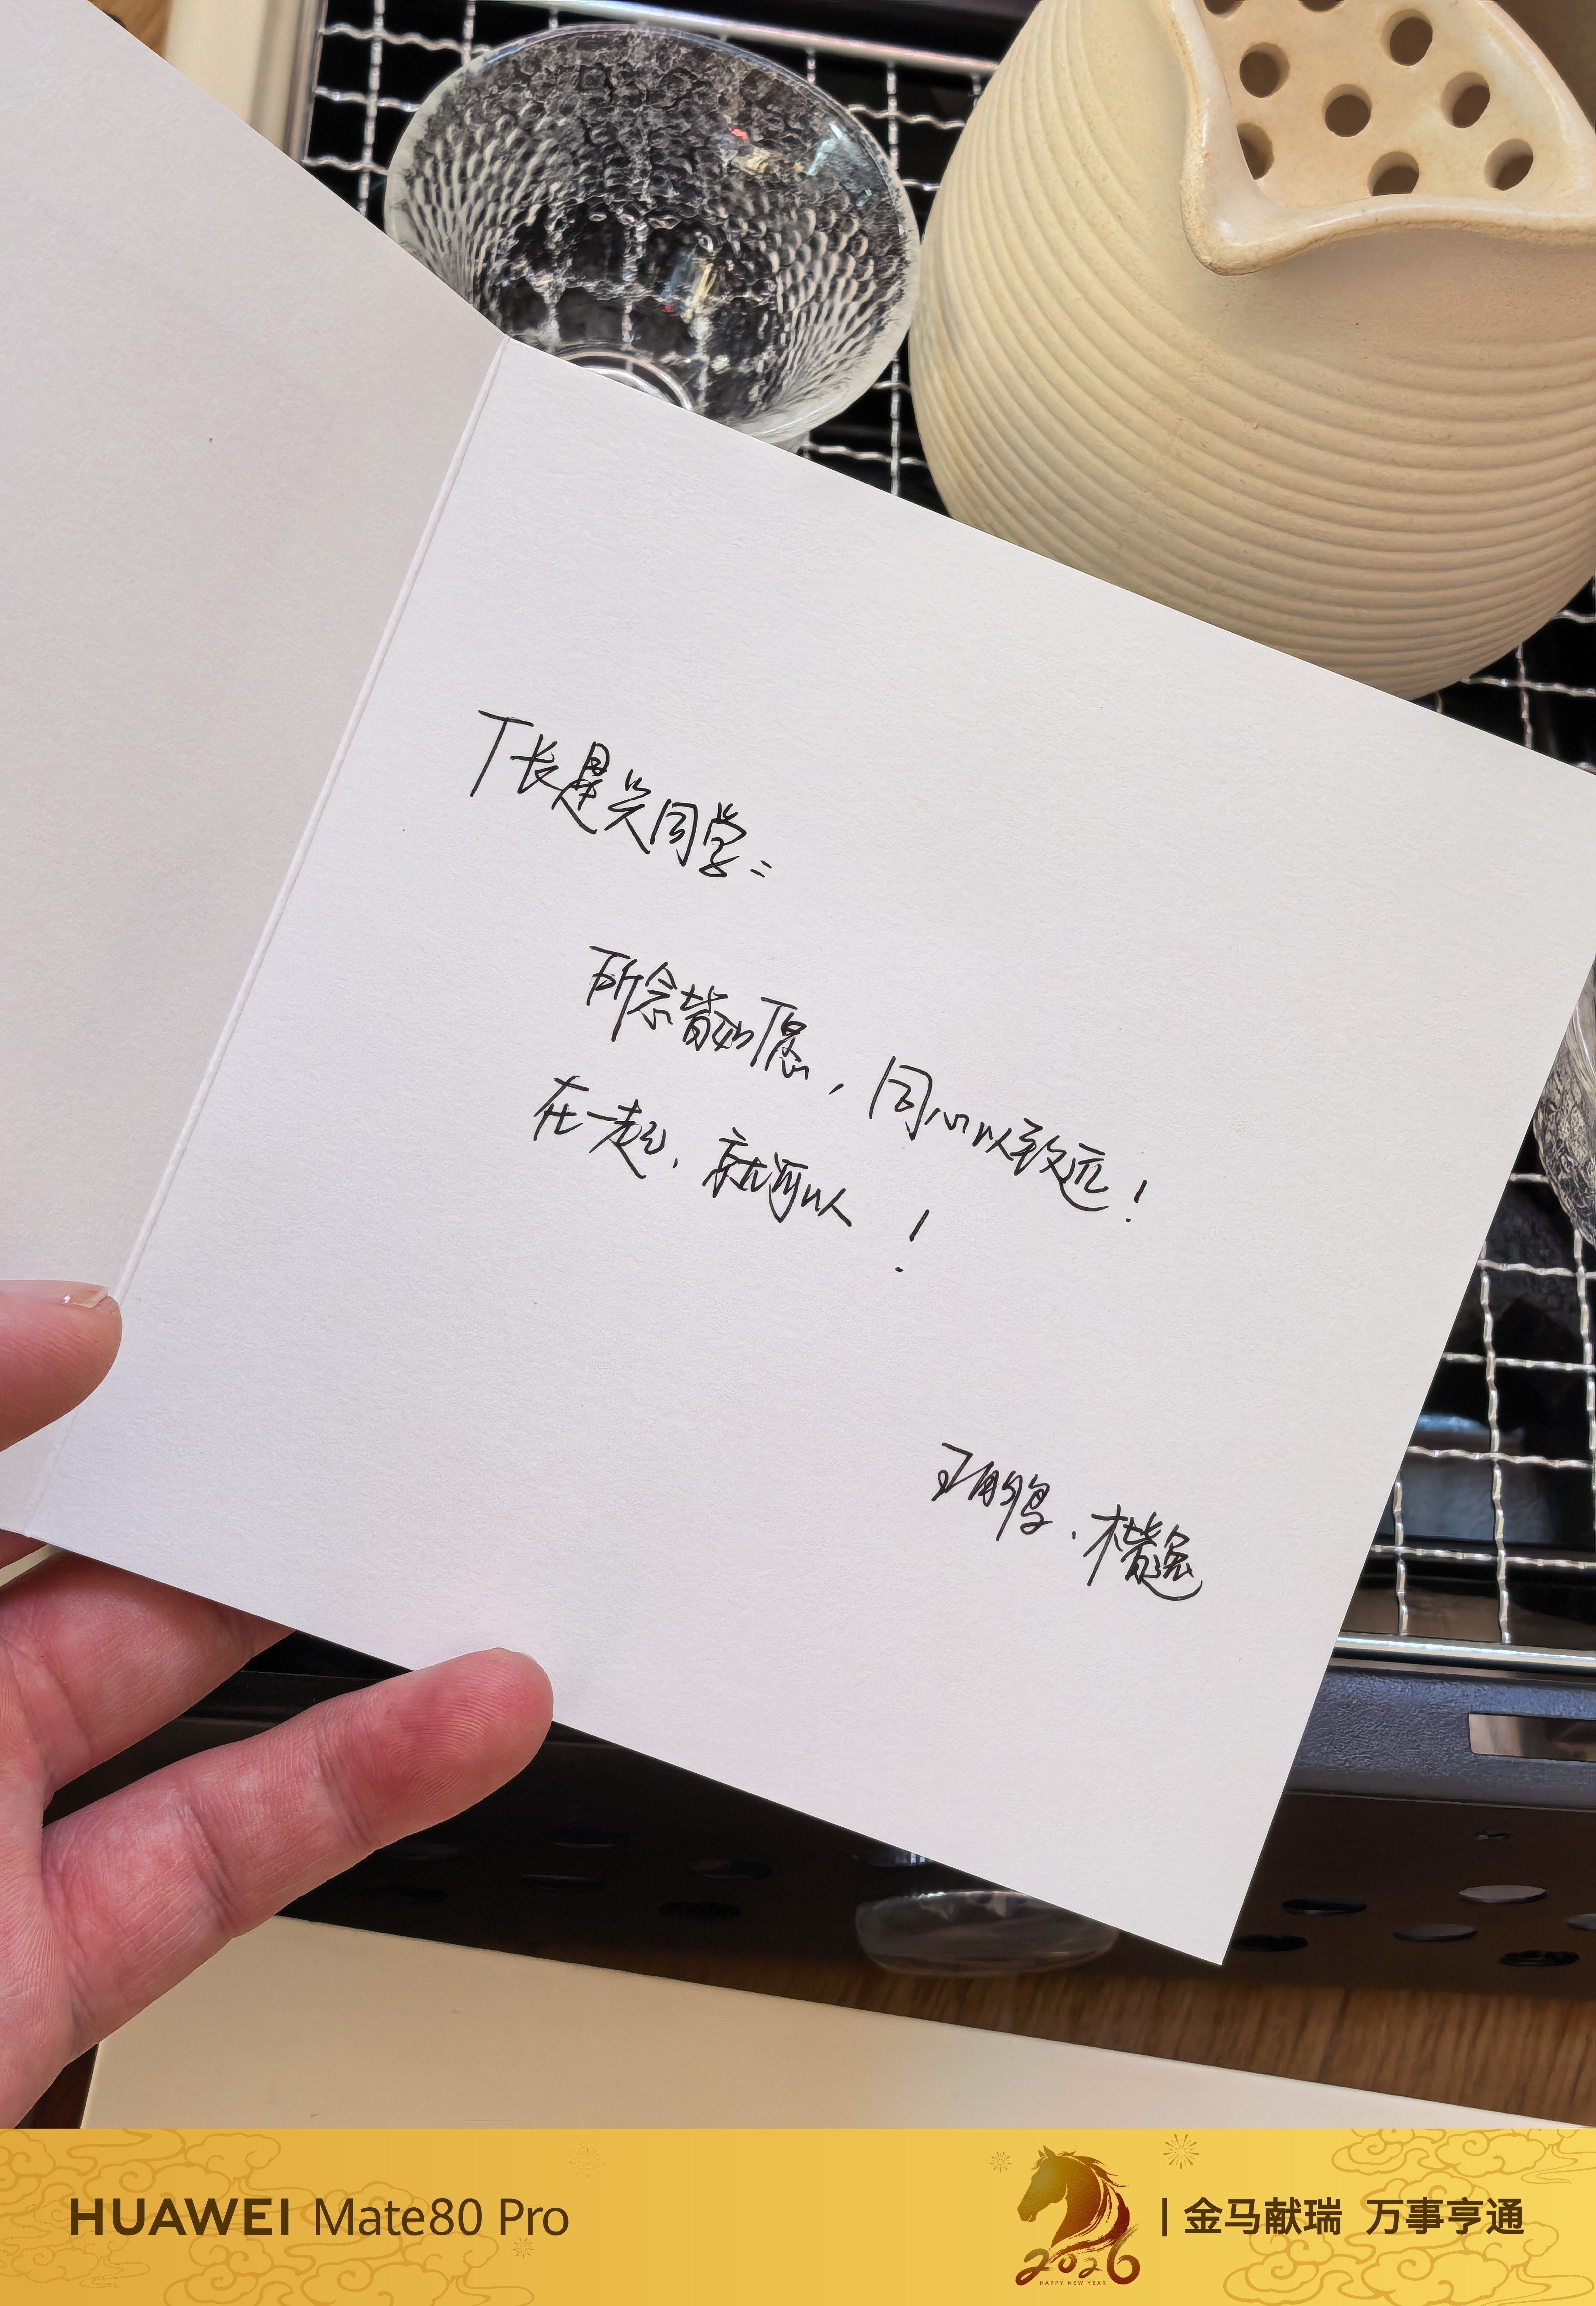 同学:
所念皆如愿,同心以致远!
在一起、就可以!
HUAWEI Mate80 Pro
2026
HAPPY NEW YEAR
金马献瑞 万事亨通